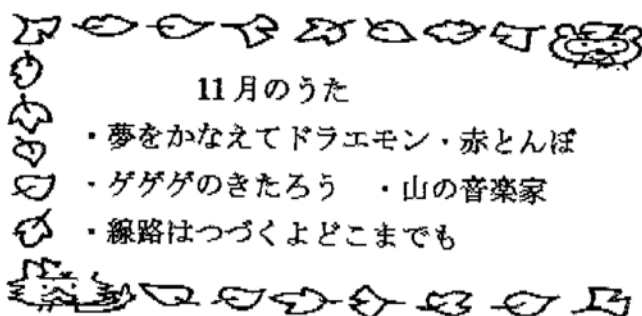 11月のうた
・夢をかなえてドラエモン・赤とんぼ
・ゲゲゲのきたろう ・山の音楽家
・線路はつづくよどこまでも